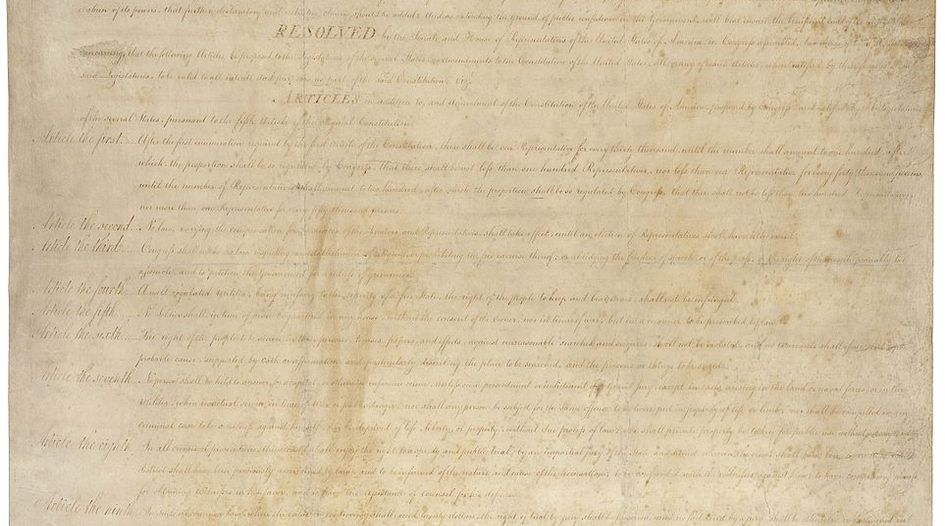 of its powers, that further declaratory and restrictive clauses should be added: And as extending the ground of public confidence in the Government, will best ensure the beneficent ends of its
RESOLVED by the Senate and House of Representatives of the United States of America, in Congress assembled, two thirds of both Houses
concurring, that the following Articles be proposed to the Legislatures of the several States, as amendments to the Constitution of the United States, all, or any of which Articles, when ratified by three fourths of the
said Legislatures, to be valid to all intents and purposes, as part of the said Constitution, viz.
ARTICLES in addition to, and amendment of the Constitution of the United States of America, proposed by Congress, and ratified by the Legislatures
of the several States, pursuant to the fifth Article of the original Constitution.
Article the first. After the first enumeration required by the first Article of the Constitution, there shall be one Representative for every thirty thousand, until the number shall amount to one hundred, after
which, the proportion shall be so regulated by Congress, that there shall be not less than one hundred Representatives, nor less than one Representative for every forty thousand persons,
until the number of Representatives shall amount to two hundred, after which the proportion shall be so regulated by Congress, that there shall not be less than two hundred Representatives,
nor more than one Representative for every fifty thousand persons.
Article the second. No law, varying the compensation for the services of the Senators and Representatives, shall take effect, until an election of Representatives shall have intervened.
Article the third. Congress shall make no law respecting an establishment of religion, or prohibiting the free exercise thereof; or abridging the freedom of speech, or of the press; or the right of the people peaceably to
assemble, and to petition the Government for a redress of grievances.
Article the fourth. A well regulated Militia, being necessary to the security of a free State, the right of the people to keep and bear Arms, shall not be infringed.
Article the fifth. No Soldier shall, in time of peace be quartered in any house, without the consent of the owner, nor in time of war, but in a manner to be prescribed by law.
Article the sixth. The right of the people to be secure in their persons, houses, papers, and effects, against unreasonable searches and seizures, shall not be violated, and no warrants shall issue, but upon
probable cause, supported by Oath or affirmation, and particularly describing the place to be searched, and the persons or things to be seized.
Article the seventh. No person shall be held to answer for a capital, or otherwise infamous crime, unless on a presentment or indictment of a Grand Jury, except in cases arising in the land or naval forces, or in the
Militia, when in actual service in time of War or public danger; nor shall any person be subject for the same offence to be twice put in jeopardy of life or limb; nor shall be compelled in any
criminal case to be a witness against himself, nor be deprived of life, liberty, or property, without due process of law; nor shall private property be taken for public use, without just compensation.
Article the eighth. In all criminal prosecutions, the accused shall enjoy the right to a speedy and public trial, by an impartial jury of the State and district wherein the crime shall have been committed, which
district shall have been previously ascertained by law, and to be informed of the nature and cause of the accusation; to be confronted with the witnesses against him; to have compulsory process
for obtaining witnesses in his favor, and to have the assistance of counsel for his defence.
Article the ninth. In suits at common law, where the value in controversy shall exceed twenty dollars, the right of trial by jury shall be preserved, and no fact tried by a jury, shall be otherwise re-examined in